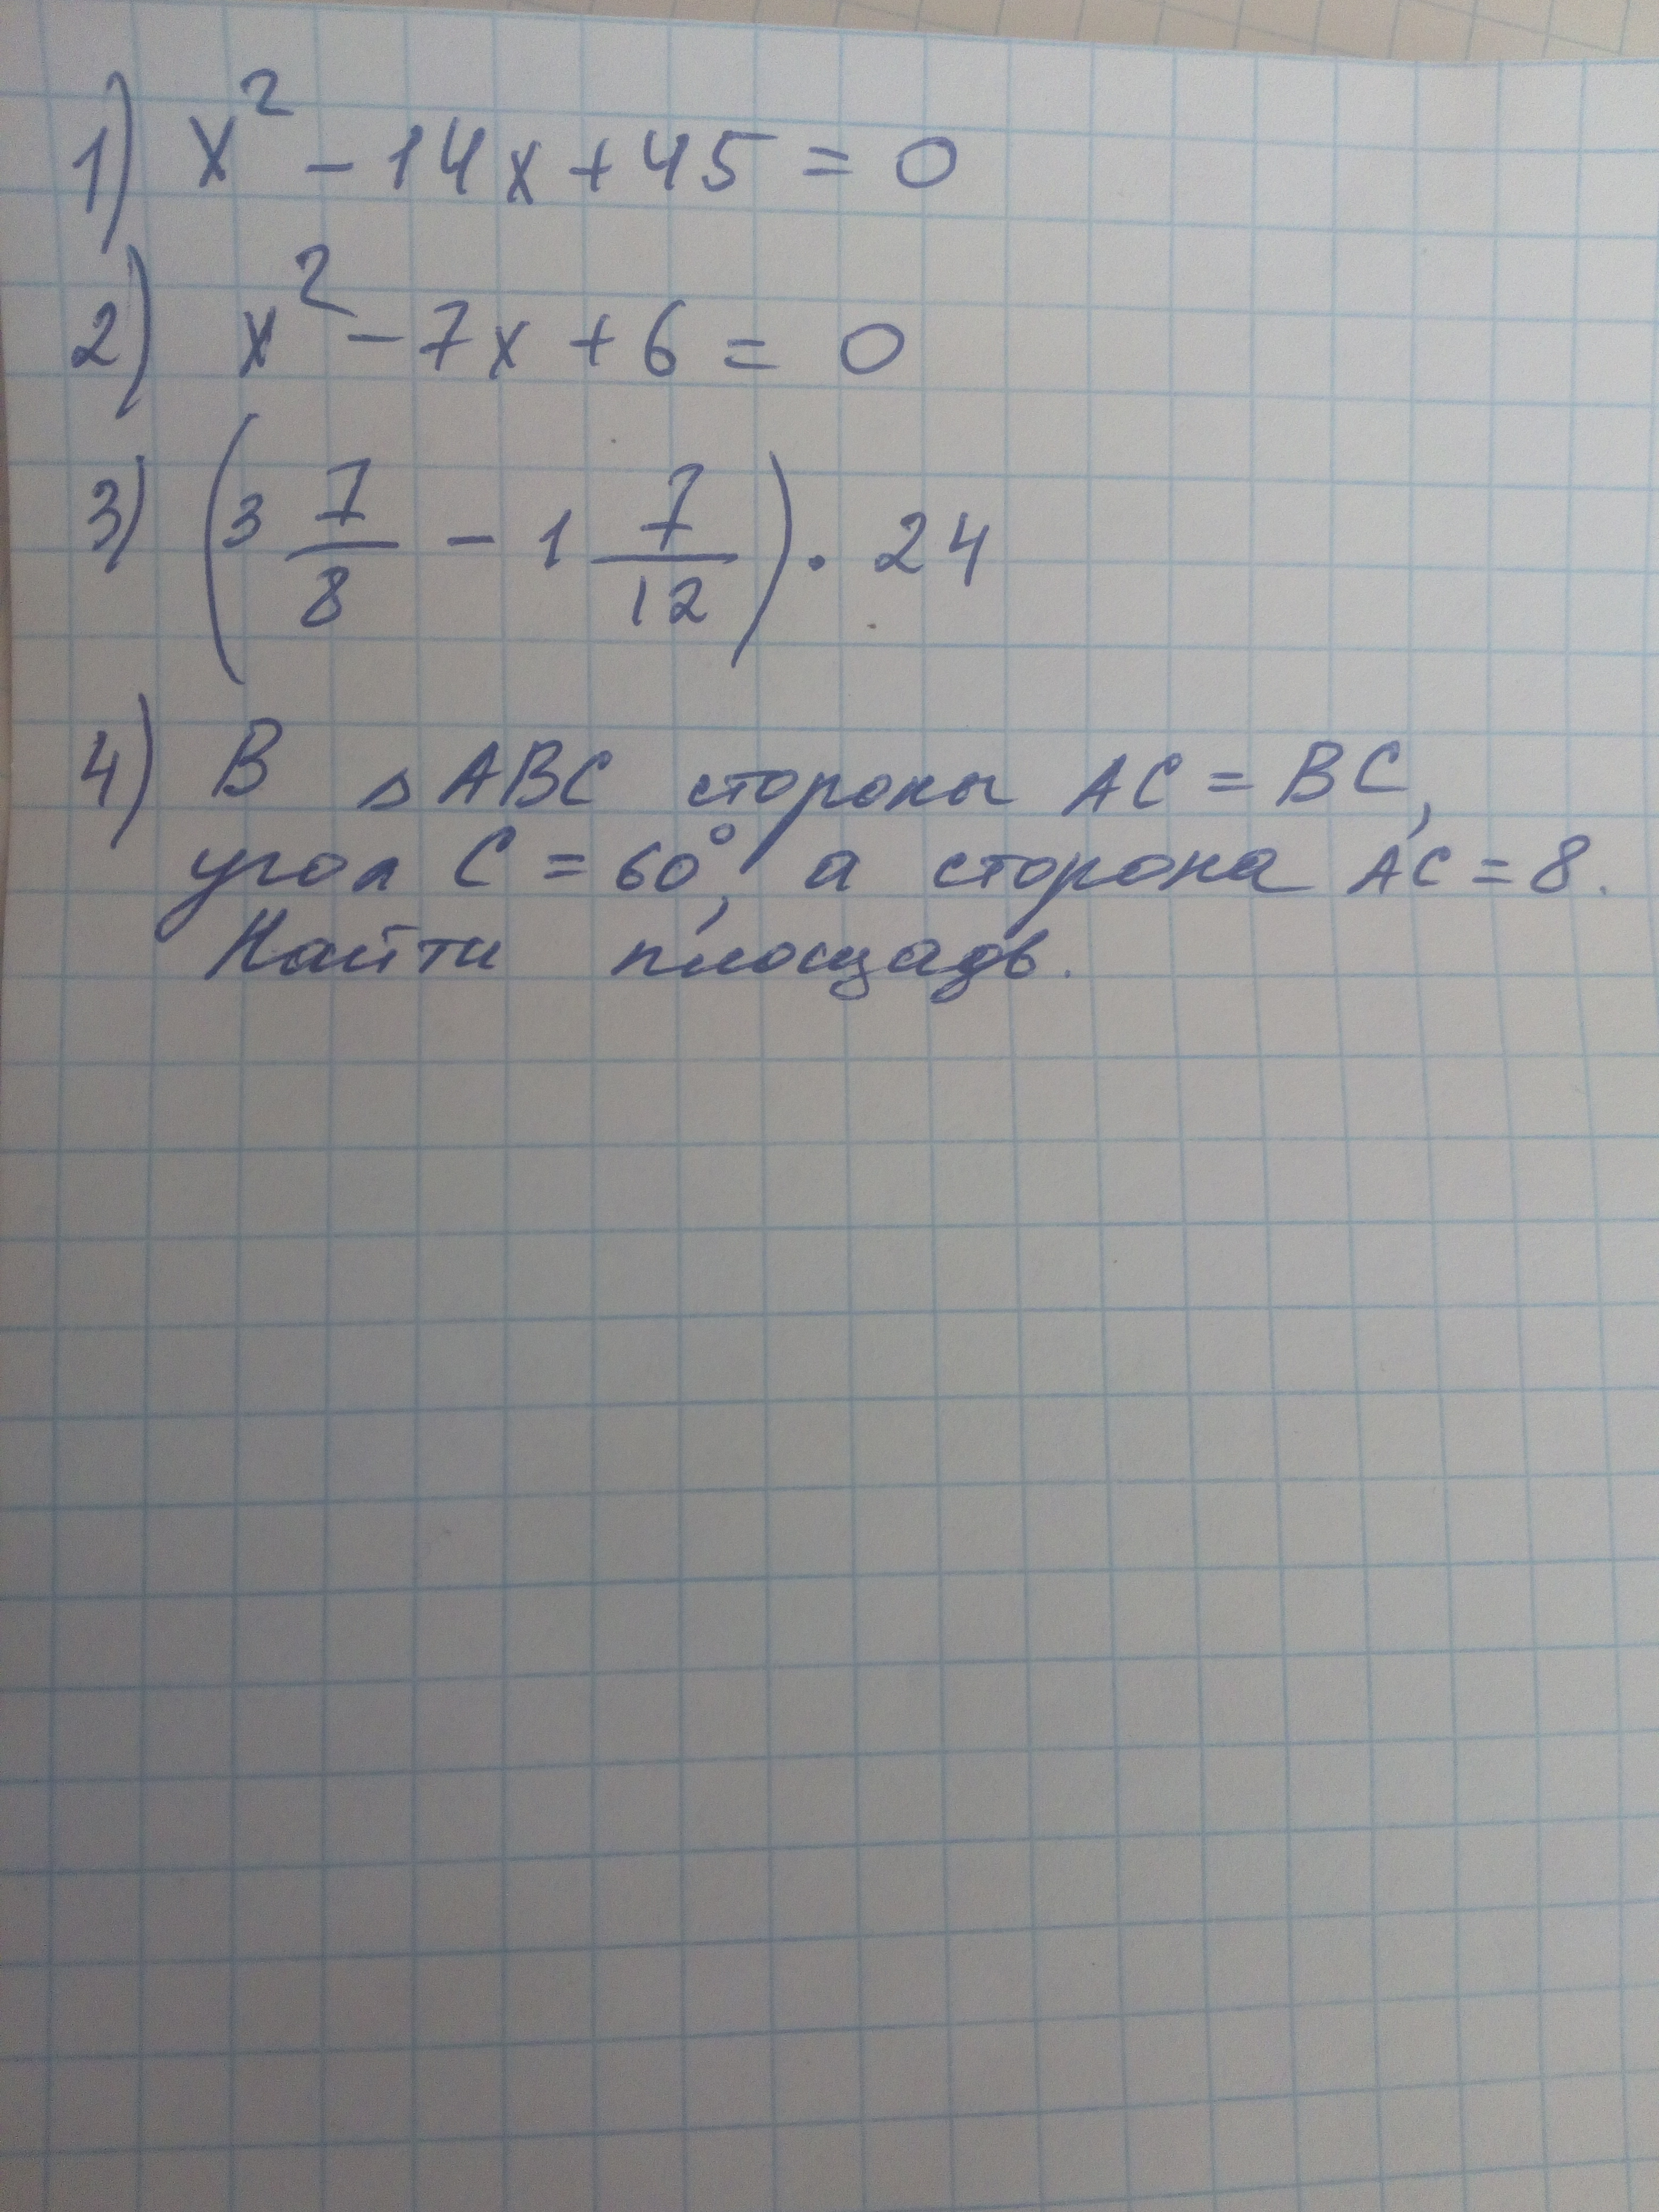 1) x² - 14x + 45 = 0
2) x² - 7x + 6 = 0
3) (3 7/8 - 1 7/12) · 24
4) В △ABC стороны AC = BC,
угол C = 60°, а сторона AC = 8.
Найти площадь.